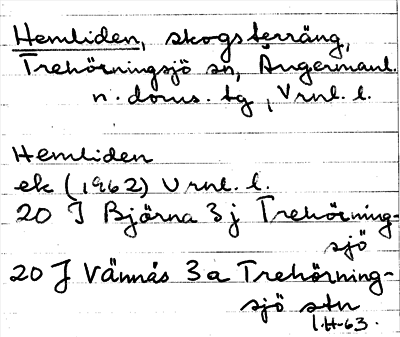 Hemliden, skogsterräng,
Trehörningsjö sn, Ångermanl.
n. doms. tg, Vrnl. l.
Hemliden
ek (1962) Vrnl. l.
20 J Björna 3 j Trehörning-
sjö
20 J Vännäs 3 a Trehörning-
sjö stn
1.H-63.